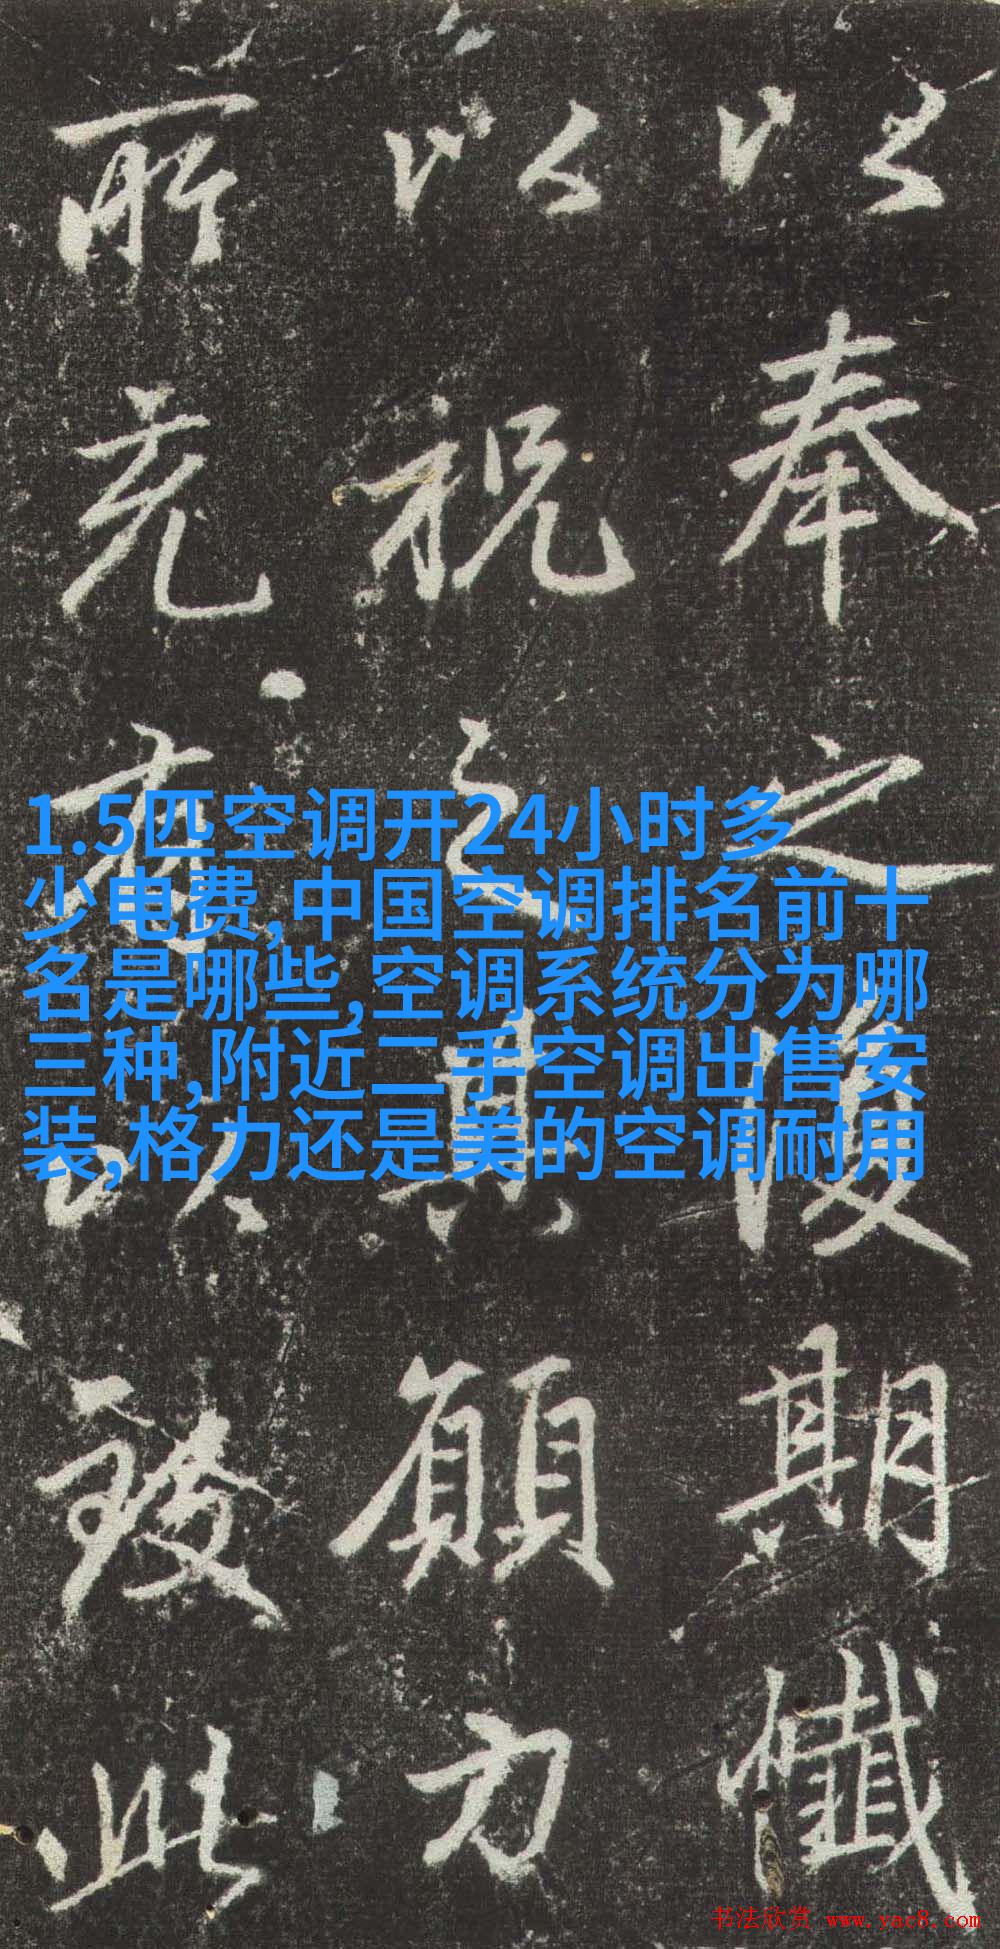 以奉之後期懺
以祝之其願力
所充以致此
1.5匹空调开24小时多
少电费,中国空调排名前十
名是哪些,空调系统分为哪
三种,附近二手空调出售安
装,格力还是美的空调耐用
书法欣赏 www.yac8.com